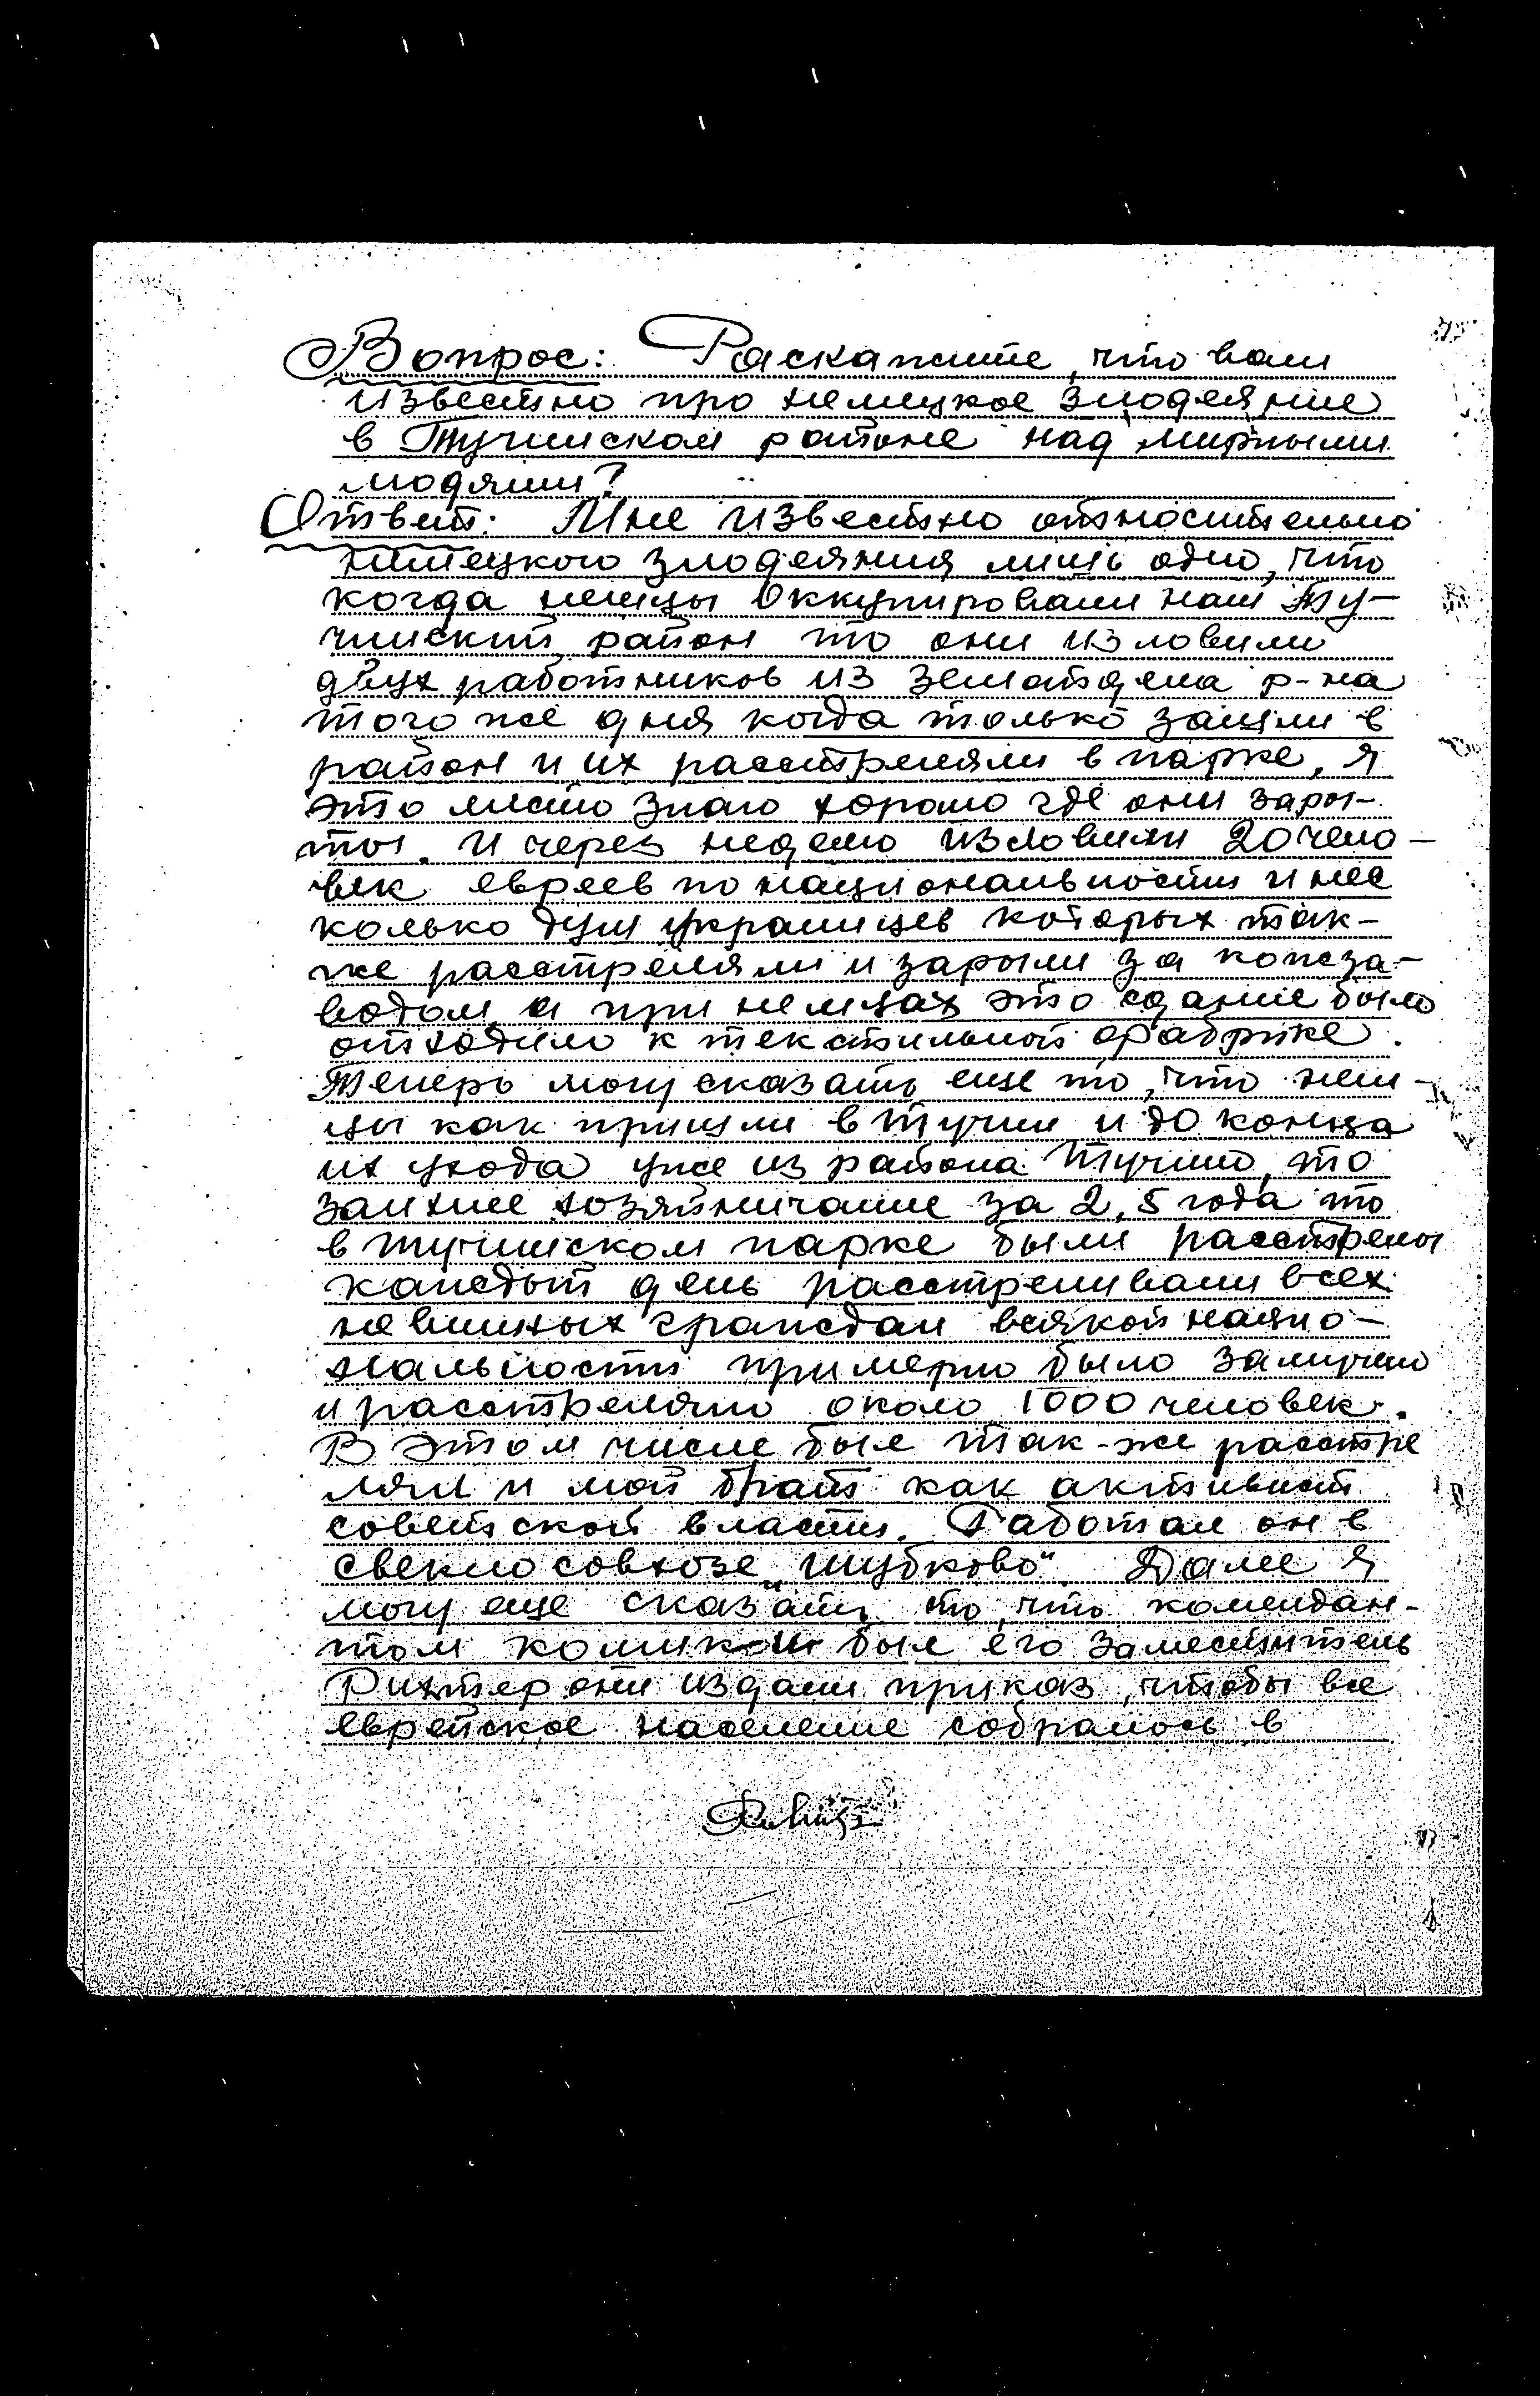 Вопрос: Раскажите, что вам
известно про немецкое злодеяние
в Тучинском районе над мирными
людями?
Ответ: Мне известно относительно
немецкого злодеяния лишь одно, что
когда немцы оккупировали наш Ту-
чинский район то они изловили
двух работников из земотдела р-на
того же дня когда только зашли в
район и их расстреляли в парке, я
это место знаю хорошо где они зары-
ты. И через неделю изловили 20 чело-
век евреев по национальности и нес
колько душ украинцев которых так-
же расстреляли и зарыли за кожза-
водом а при немцах это сдание было
отходило к текстильной фабрике.
Теперь могу сказать еще то, что нем-
цы как пришли в Тучин и до конца
их ухода уже из района Тучино, то
за ихнее хозяйничание за 2,5 года то
в тучинском парке были расстрелы
каждый день расстреливали всех
невинных граждан всякой нацио-
нальности примерно было замучено
и расстреляно около 1000 человек.
В этом числе был так-же расстре
лян и мой брат как активист
советской власти. Работал он в
свеклосовхозе „Шубково". Далее я
могу еще сказать то, что комендан-
том был его заместитель
Рихтер они издали приказ, чтобы все
еврейское население собралось в